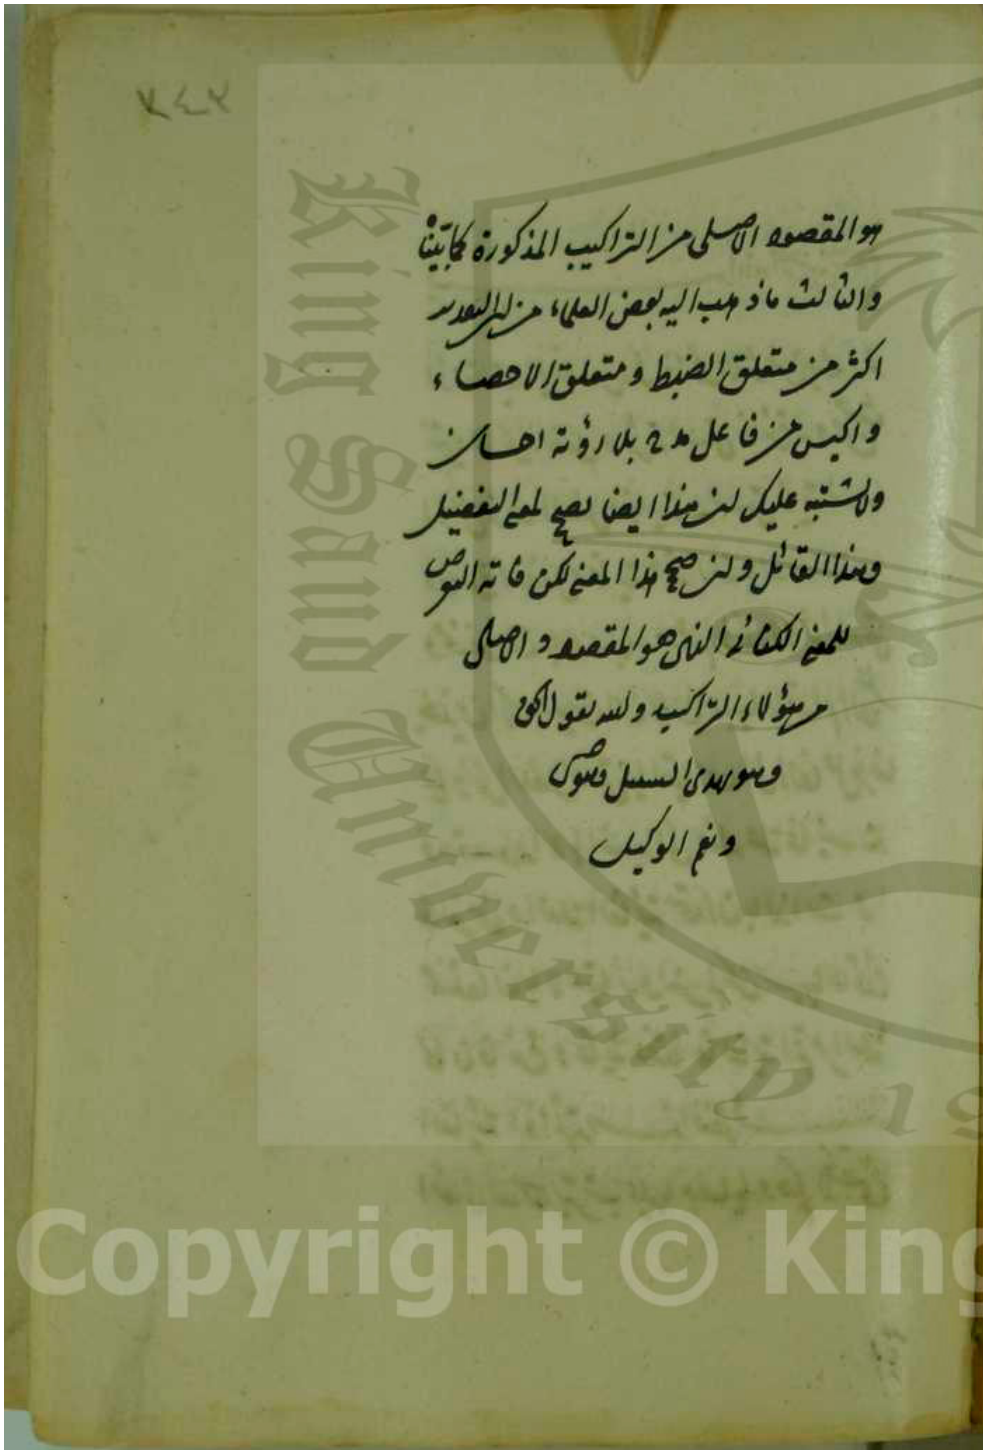 ٧٤٢
هو المقصود الاصلى من التراكيب المذكورة كما بيّنّا
والثالث ما ذهب اليه بعض العلماء من ان
اكثر من متعلق الضبط ومتعلق الاحصاء
واكيس من فاعل بلا رؤية احسان
ولا يشتبه عليك ان هذا ايضا يصح لمعنى التفضيل
وهذا القائل وان صح هذا المعنى لكن فاته
للمعنى الكنائى الذى هو المقصود الاصلى
من هؤلاء التراكيب والله يقول الحق
وهو يهدى السبيل وهو حسبى
ونعم الوكيل
King Saud University 19
Copyright © King